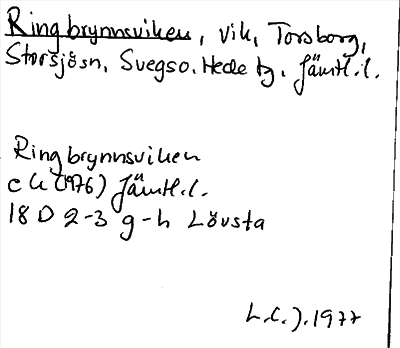 Ringbrynnsviken, vik, Torsborg,
Storsjösn, Svegso. Hede tg. Jämtl.l.
Ringbrynnsviken
ck (1976) Jämtl.l.
18 D 2-3 g-h Lövsta
L.C.J. 1977